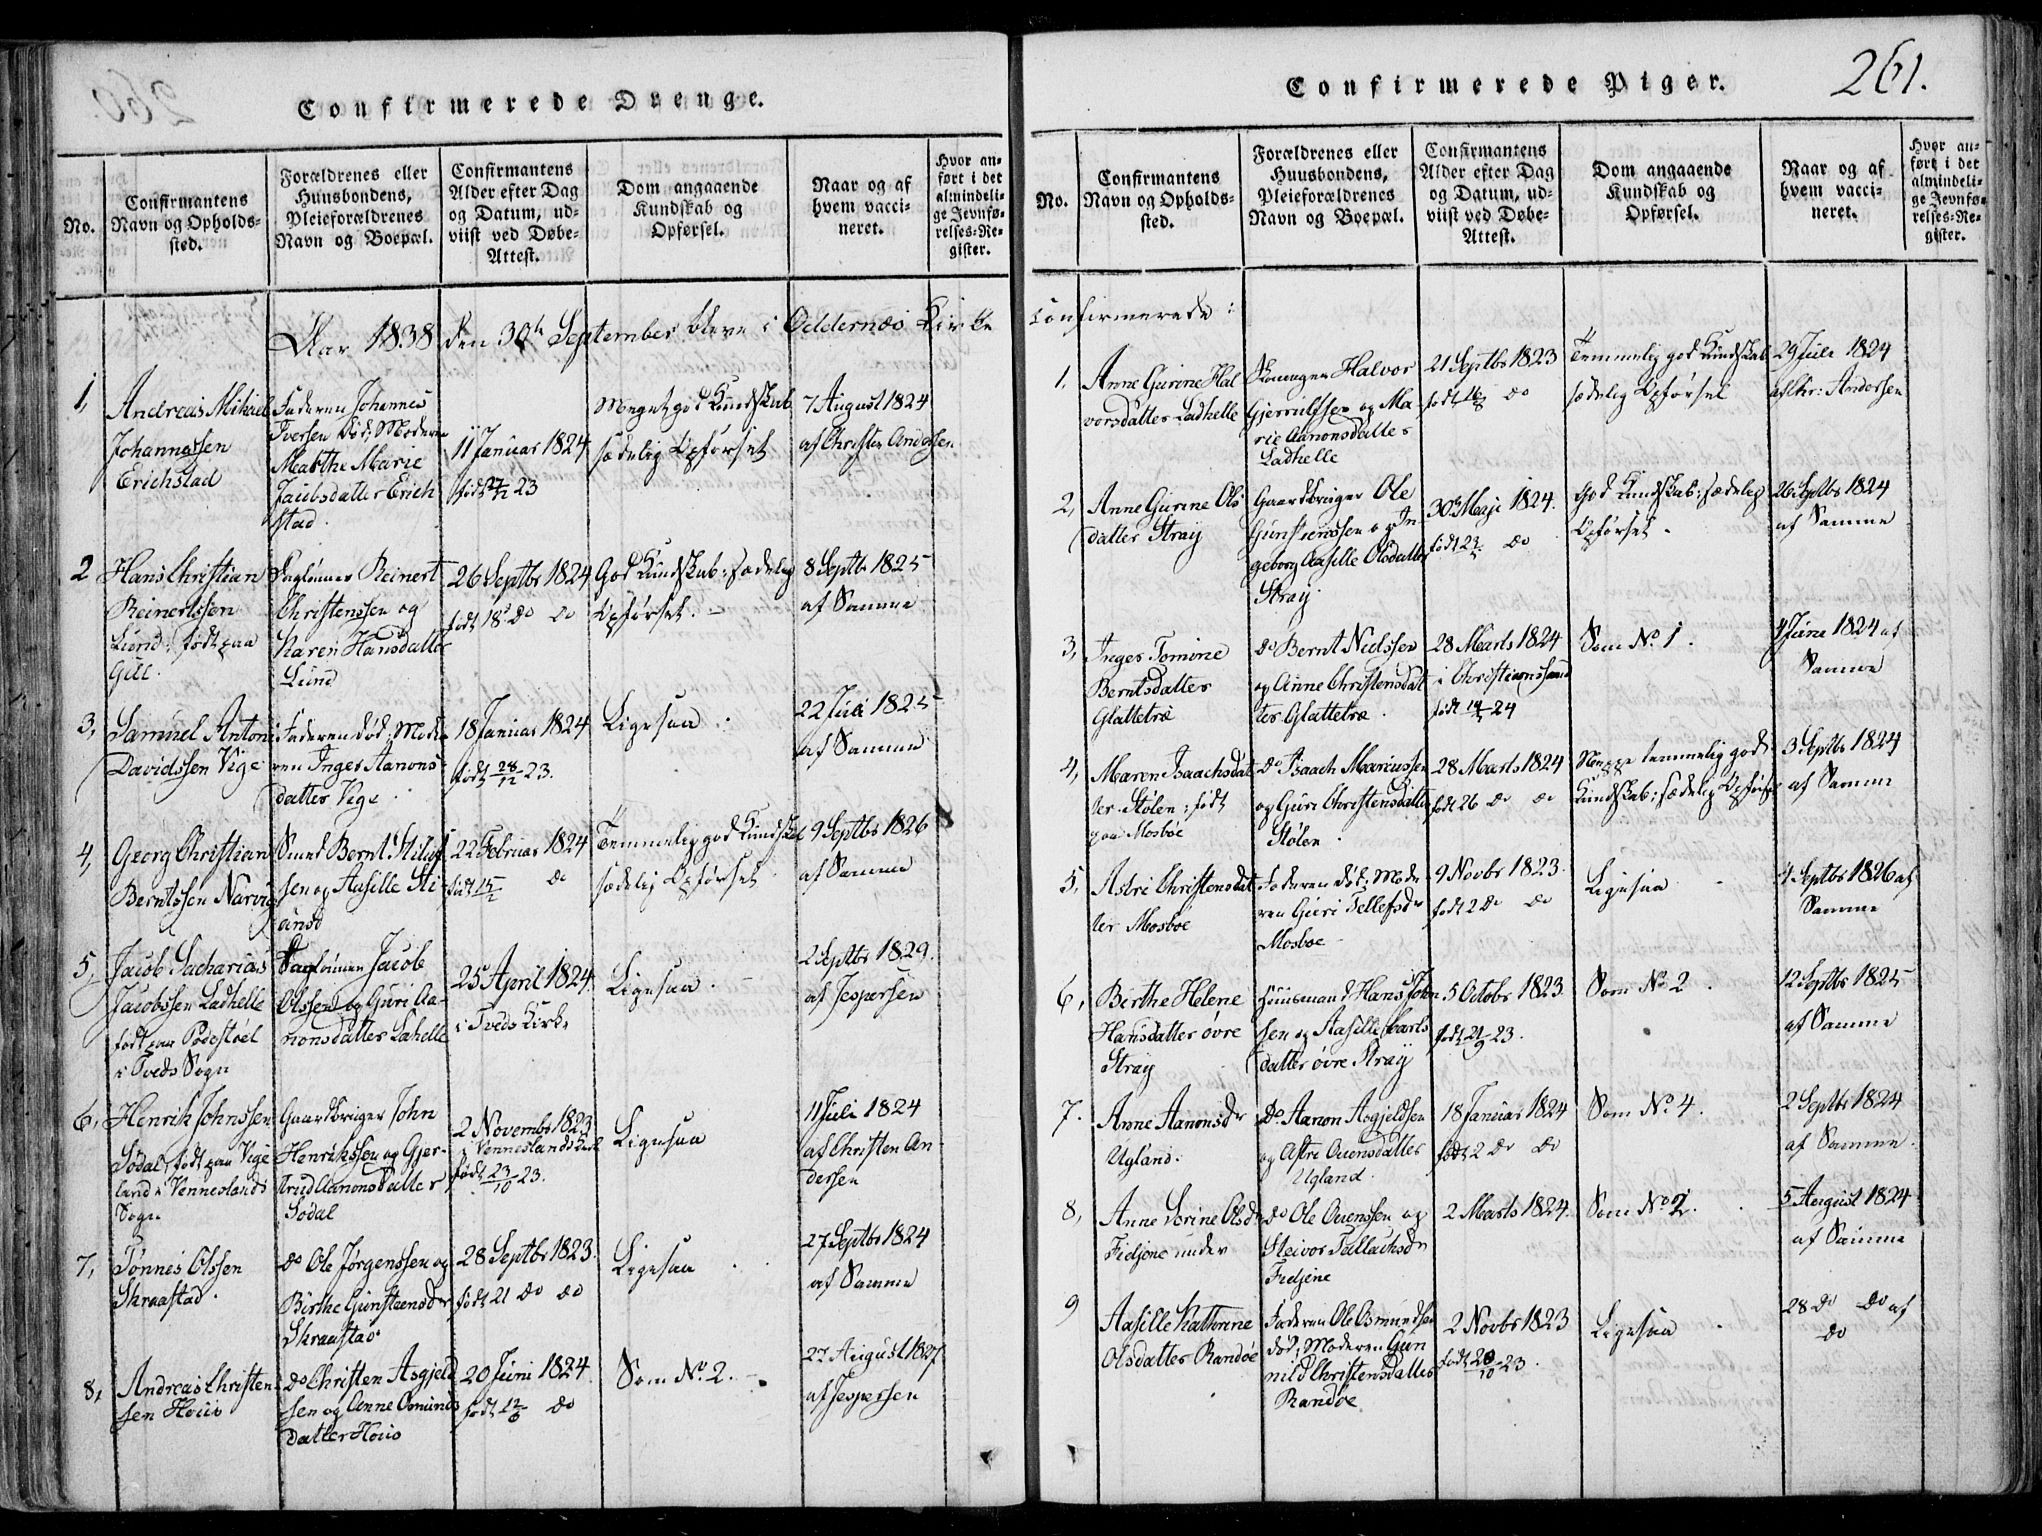 Confirmerede Drenge.
No.
Confirmantens
Navn og Opholds-
sted.
Forældrenes eller
Huusbondens,
Pleieforældrenes
Navn og Boepæl.
Confirmantens
Alder efter Dag
og Datum, ud-
viist ved Døbe-
Attest.
Dom angaaende
Kundskab og
Opførsel.
Naar og af
hvem vacci-
neret.
Hvor an-
ført i det
almindeli-
ge Jevnfø-
relses-Re-
gister.
Aar 1838 den 30te September bleve i Oddernæs Kirke
1,
Andreas Mikael
Johannessen
Erichstad
Faderen Johannes
Iversen død; Moderen
Marthe Marie
Jacobsdatter Erich
stad.
11 Januar 1824
født 27/12 23
Meget god Kundskab
sædelig Opførsel
7 August 1824
af Christen Andersen
2
Hans Christian
Reinertssen
Lund; født paa
Gill.
Daglønner Reinert
Christenssen og
Karen Hansdatter
Lund
26 Septbr 1824
født 18 do do
God Kundskab; sædelig
Opførsel. -
8 Septbr 1825
af Samme
3,
Samuel Antoni
Davidssen Vige
Faderen død; Mode
ren Inger Aanons
datter Vige
18 Januar 1824
født 28/12 23.
Ligesaa
22 Juli 1825
af Samme
4,
Georg Christian
Berntssen Narvig
Smed Bernt
sen og Aasille Sti
ansd
22 Februar 1824
født 15/2 do
Temmelig god Kundskab
sædelig Opførsel
9 Septbr 1826
af Samme
5,
Jacob Sacharias
Jacobssen Ladhelle
født paa Podestøel
i Tveds Sogn
Daglønner Jacob
Olssen og Guri Aa-
nonsdatter Lahelle
25 April 1824
i Tveds Kirke
Ligesaa
2 Septbr 1829.
af Jespersen
6,
Henrik Johnssen
Sødal, født paa Vige
land i Venneslands
Sogn
Gaardbruger John
Henrikssen og Gjer-
trud Aanonsdatter
Sødal
2 Novembr 1823
i Venneslands Kirke
født 23/10 23.
Ligesaa
11 Juli 1824
af Christen An-
dersen
7,
Tønnes Olssen
Skraastad.
do Ole Jørgenssen og
Birthe Gunsteensdr
Skraastad
28 Septbr 1823.
født 21 do do
Ligesaa
27 Septbr 1824
af Samme
8,
Andreas Christen
sen Hous
do Christen Asgjeld
sen og Anne Osmunds
datter Hous
20 Juni 1824
født 12/6 do
Som No. 2.
27 August 1827
af Jespersen
Confirmerede Piger.
261.
No.
Confirmantens
Navn og Opholds-
sted.
Forældrenes eller
Huusbondens,
Pleieforældrenes
Navn og Boepæl.
Confirmantens
Alder efter Dag
og Datum, ud-
viist ved Døbe-
Attest.
Dom angaaende
Kundskab og
Opførsel.
Naar og af
hvem vacci-
neret.
Hvor an-
ført i det
almindeli-
ge Jevnfø-
relses-Re-
gister.
Confirmerede:
1,
Anne Gurine Hal
vorsdatter Ladhelle
Halvor
Gjerrulfsen og Ma
rie Aanonsdatter
Ladhelle
21 Septbr 1823
født 16/8 do
Temmelig god Kundskab
sædelig Opførsel
29 Juli 1824
af Chr: Andersen
2,
Anne Gurine Ols
datter Stray
Gaardbruger Ole
Gunstenssen og In
geborg Aasille Olsdatter
Stray.
30 Maji 1824.
født 23/5 do
God Kundskab; sædelig
Opførsel.
26 Septbr 1824
af Samme
3,
Inger Tomine
Berntsdatter
Glattetræ
do Bernt Nielssen
og Anne Christensdat
ter Glattetræ
28 Marts 1824
i Christianssand
født 24
Som No 1.
4 June 1824 af
Samme
4,
Maren Isaachsdat
ter Stølen; født
paa Mosbøe
do Isaach Marcussen
og Guri Christensdatter
Stølen
28 Marts 1824
født 26 do do
Neppe temmelig god
Kundskab; sædelig Opførsel
3 Septbr 1824
af Samme
5,
Astri Christensdat
ter Mosbøe
Faderen død; Mode
ren Guri Tellefsdr
Mosbøe
9 Novbr 1823.
født 2 do do
Ligesaa
4 Septbr 1826 af
Samme
6,
Birthe Helene
Hansdatter øvre
Stray
Huusmand Hans John
sen og Aasille Carls
datter øvre Stray
5 Octobr 1823.
født 21/9 23.
Som No 2
12 Septbr 1825
af Samme
7.
Anne Aanonsdr
Ugland.
Do. Aanon Asgjeldsen
og Astri Ouensdatter
Ugland.
18 Januar 1824
født 2 do do
Som No. 4.
2 Septbr 1824
af Samme.
8,
Anne Serine Olsdr
Fidjene under
do Ole Ouenssen og
Steivor Tallachsdr
Fidjene
2 Marts 1824.
Som No 2.
5 August 1824
af Samme
9
Aasille Kathrine
Olsdatter Randøe
Faderen Ole Osmundsen
død; Moderen Gun
nild Christensdatter
Randøe
2 Novbr 1823
født 20/10 23.
Ligesaa
28 do do af
do